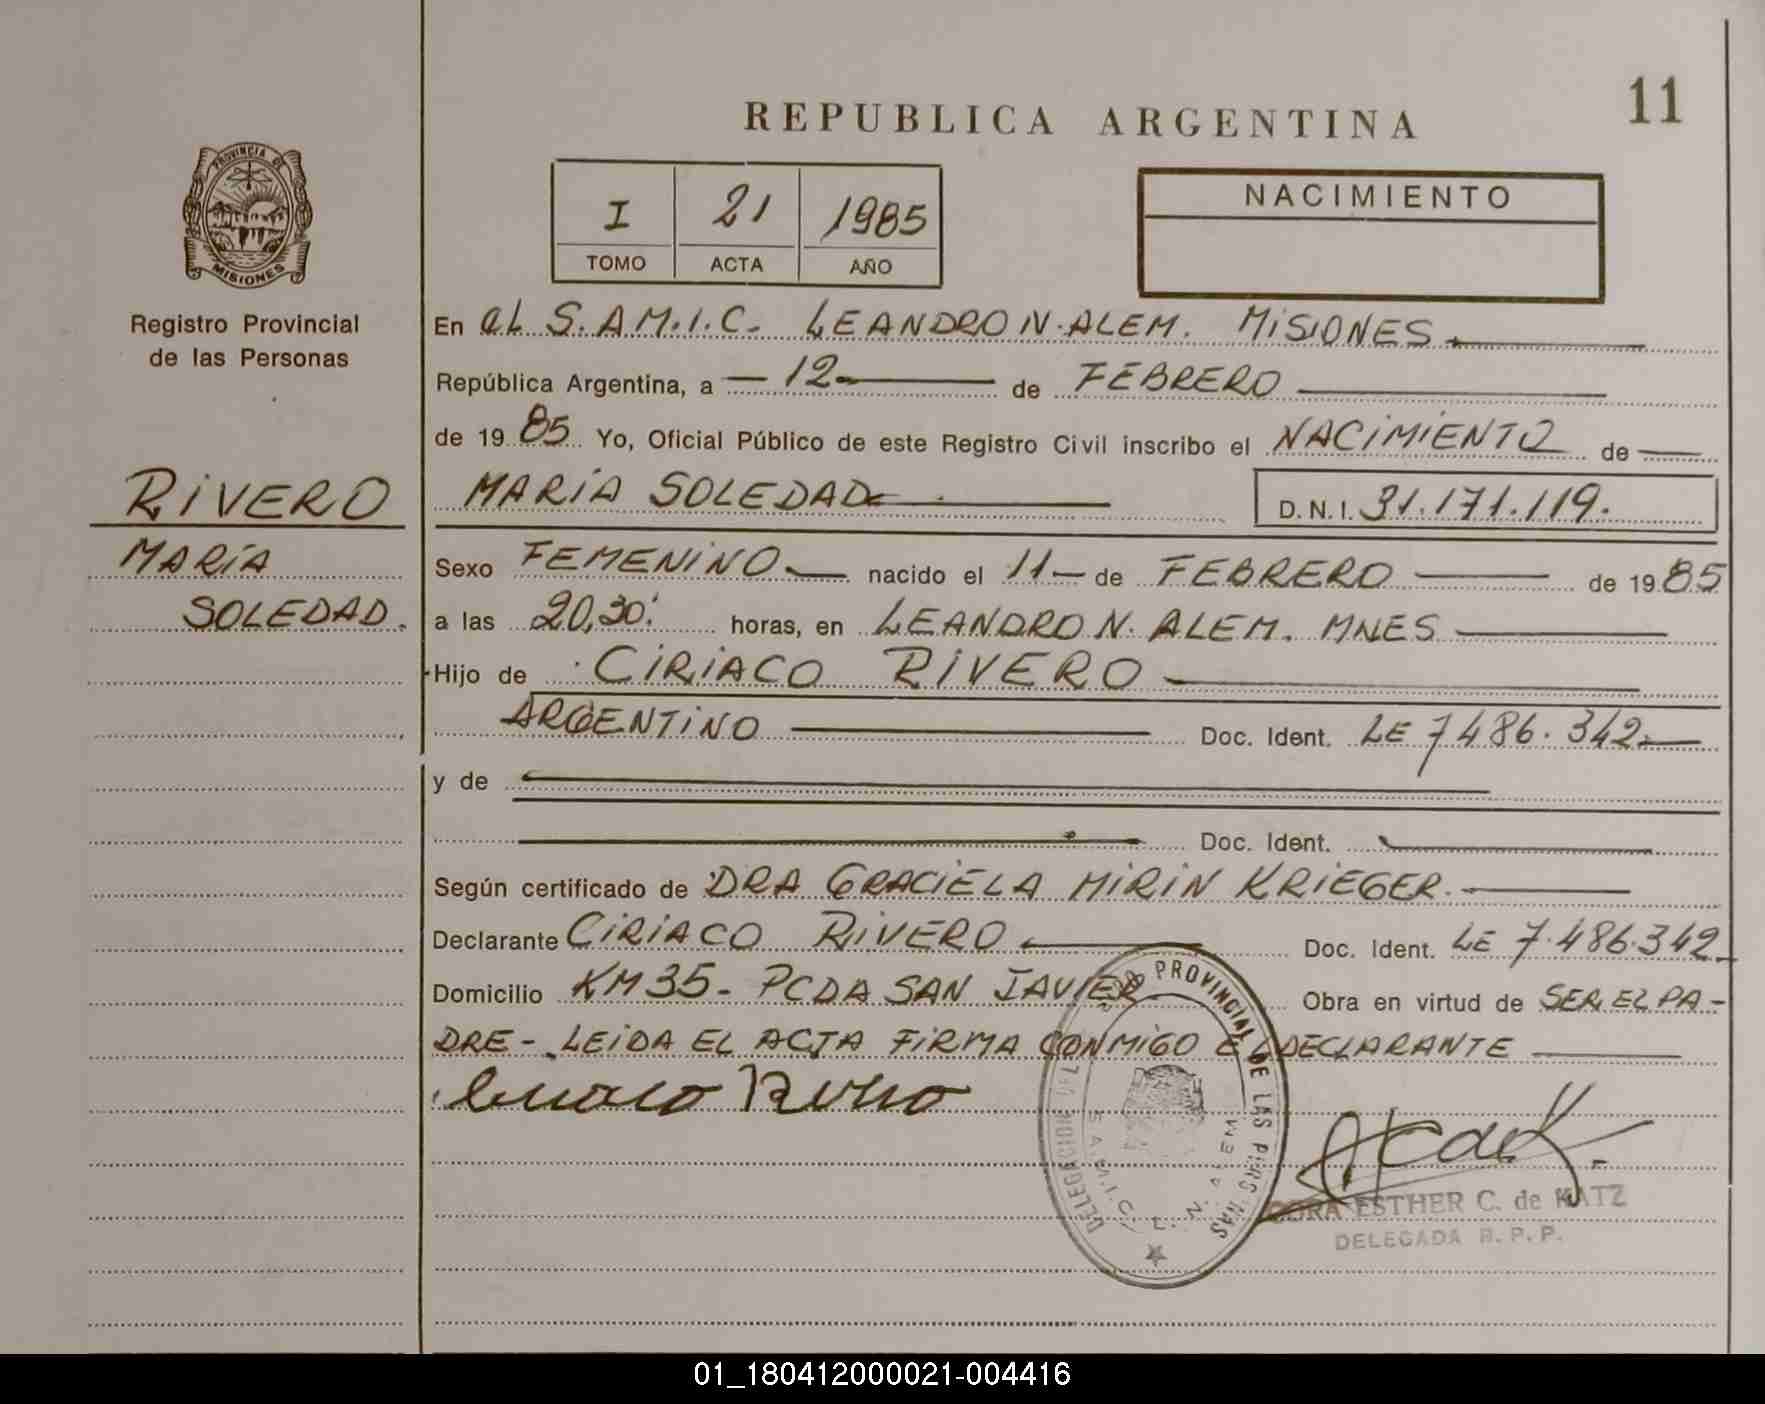 REPUBLICA ARGENTINA
11
PROVINCIA DE
MISIONES
Registro Provincial
de las Personas
I 21 1985
TOMO ACTA AÑO
NACIMIENTO
En el S.A.M.I.C. LEANDRO N. ALEM. MISIONES
República Argentina, a — 12 — de FEBRERO
de 19 85 Yo, Oficial Público de este Registro Civil inscribo el NACIMIENTO de —
RIVERO
MARÍA SOLEDAD D.N.I. 31.171.119.
MARÍA
SOLEDAD.
Sexo FEMENINO — nacido el 11 — de FEBRERO — de 19 85
a las 20,30' horas, en LEANDRO N. ALEM. MNES —
Hijo de CIRIACO RIVERO —
ARGENTINO — Doc. Ident. LE 7486.342 —
y de —
— Doc. Ident. —
Según certificado de DRA GRACIELA MIRIN KRIEGER. —
Declarante CIRIACO RIVERO — Doc. Ident. LE 7.486.342 —
Domicilio KM 35 - PCDA SAN JAVIER Obra en virtud de SER EL PA-
DRE - LEIDA EL ACTA FIRMA CONMIGO EL DECLARANTE —
Ciriaco Rivero
PROVINCIAL DE LAS PERSONAS
DELEGACION
S.A.M.I.C. L. N. ALEM
CORA ESTHER C. de KATZ
DELEGADA R.P.P.
01_180412000021-004416